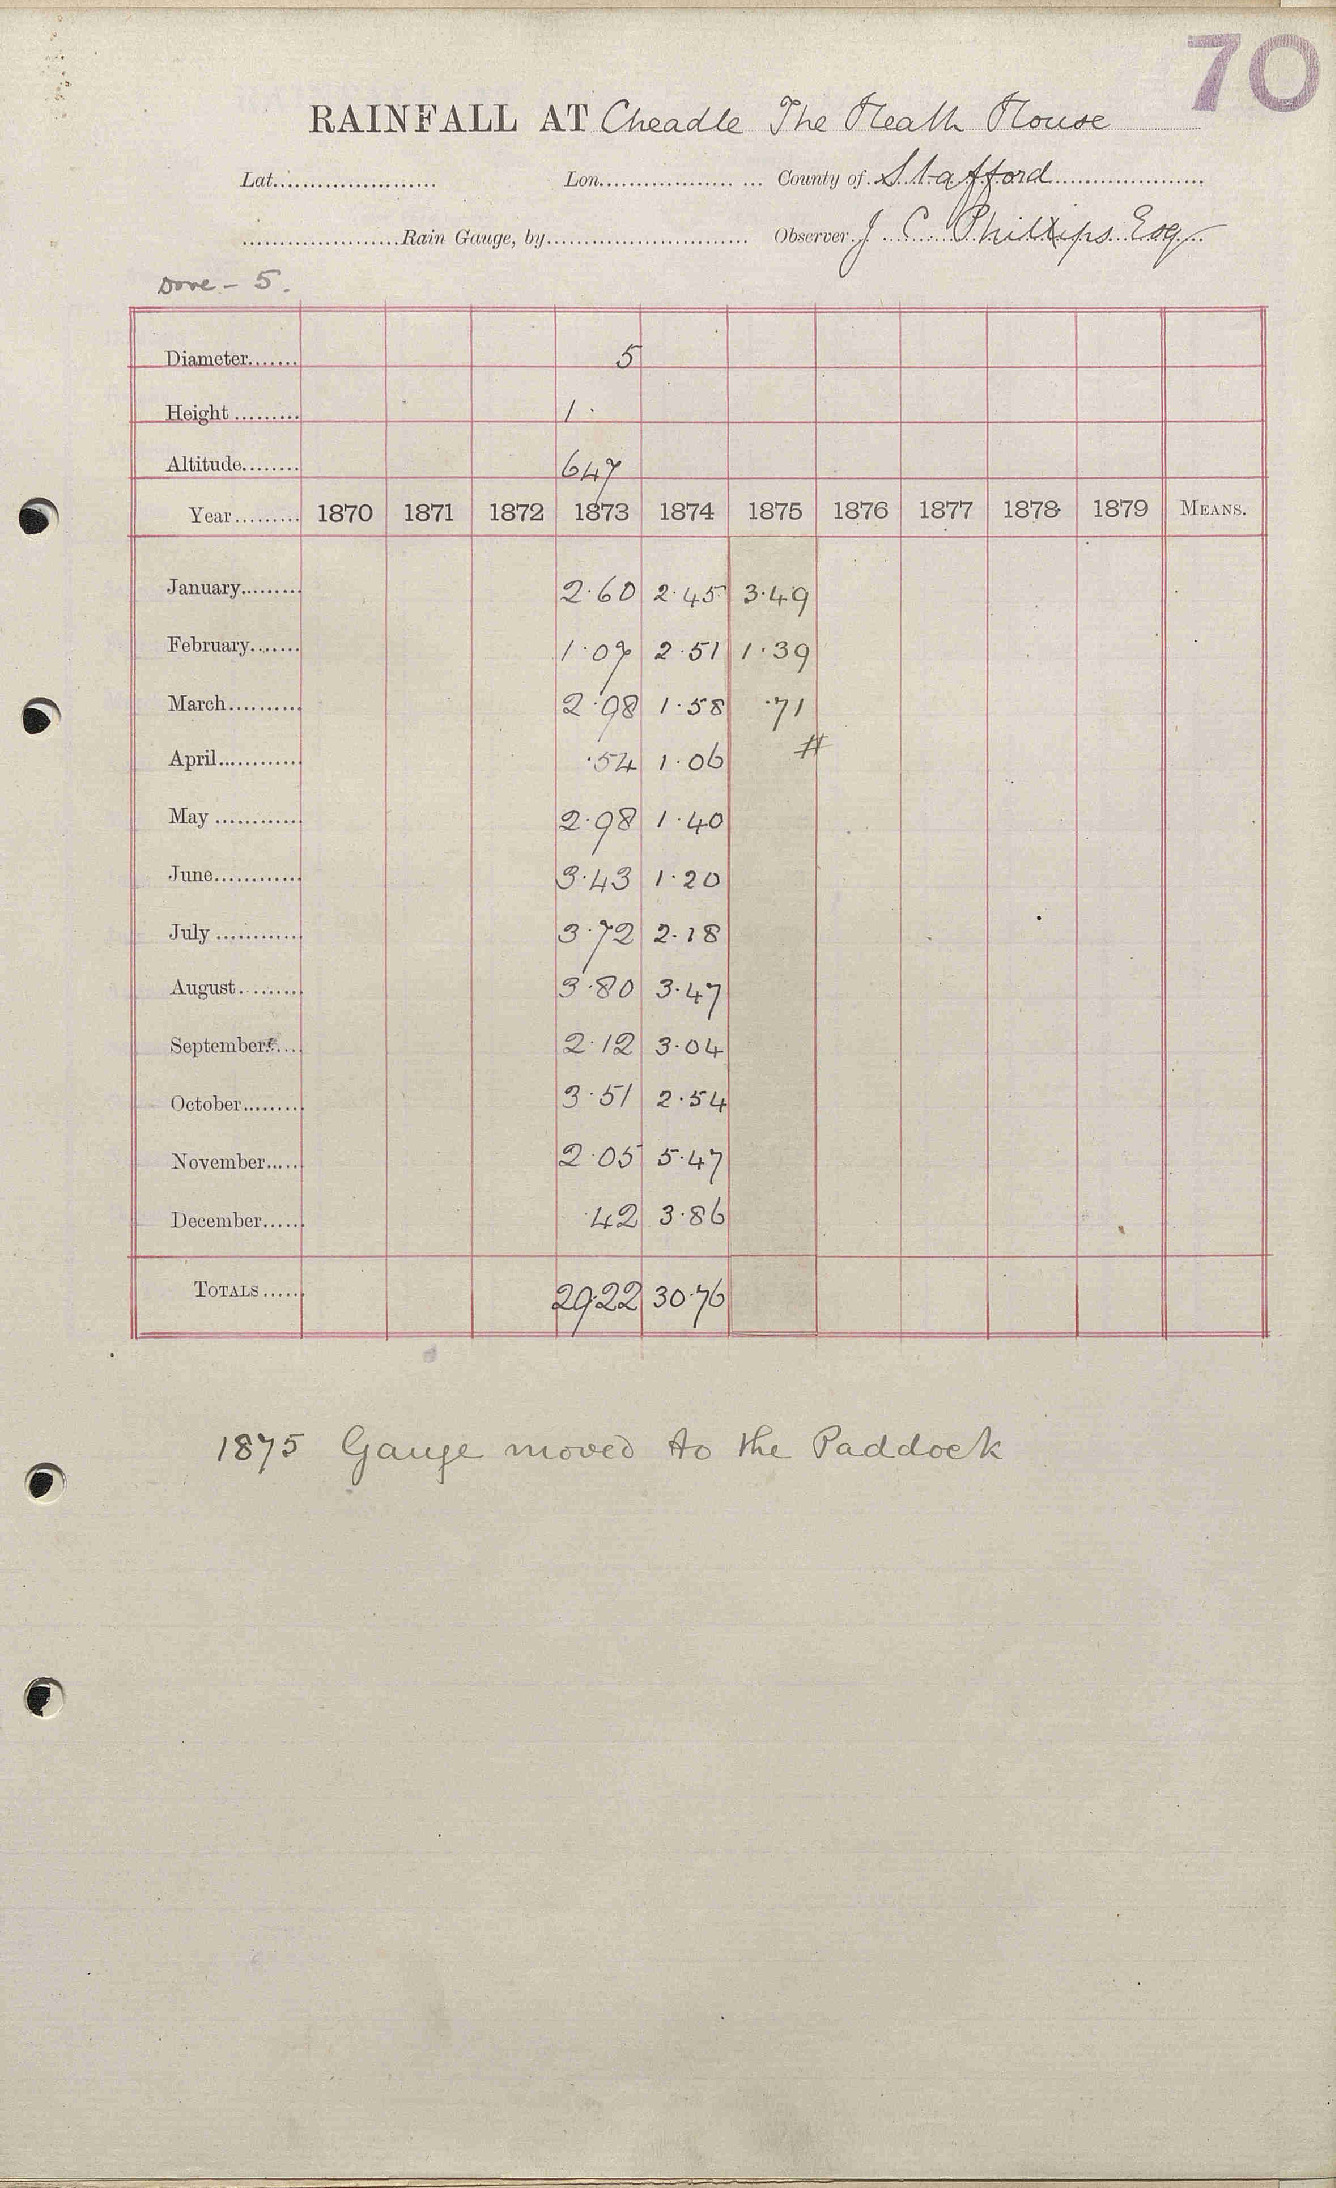 70
RAINFALL AT Cheadle The Heath House
Lat. Lon. County of Stafford
Rain Gauge, by Observer J. C. Phillips Esq
Dove - 5.
Diameter 5
Height 1 ·
Altitude 647
Year 1870 1871 1872 1873 1874 1875 1876 1877 1878 1879 MEANS.
January 2·60 2·45 3·49
February 1·07 2·51 1·39
March 2·98 1·58 ·71
April ·54 1·06 #
May 2·98 1·40
June 3·43 1·20
July 3·72 2·18
August 3·80 3·47
September 2·12 3·04
October 3·51 2·54
November 2·05 5·47
December ·42 3·86
TOTALS 29·22 30·76
1875 Gauge moved to the Paddock